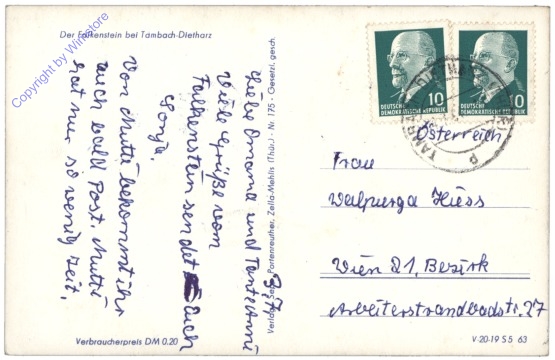 Der Falkenstein bei Tambach-Dietharz
Copyright by Winstore
3,7
Liebe Omama und Tante Anni
Viele Grüße vom
Falkenstein sendet Euch
Sonja.
Von Mutti bekommt ihr
auch bald Post. Mutti
hat nur so wenig Zeit.
Verbraucherpreis DM 0.20
Nr. 175 - Gesetzl. gesch.
DEUTSCHE
DEMOKRATISCHE REPUBLIK
10
DEUTSCHE
DEMOKRATISCHE REPUBLIK
10
Österreich
Frau
Walpurga Hiess
Wien 21, Bezirk
Arbeiterstrandbadstr. 27
V-20-19 S 5 63